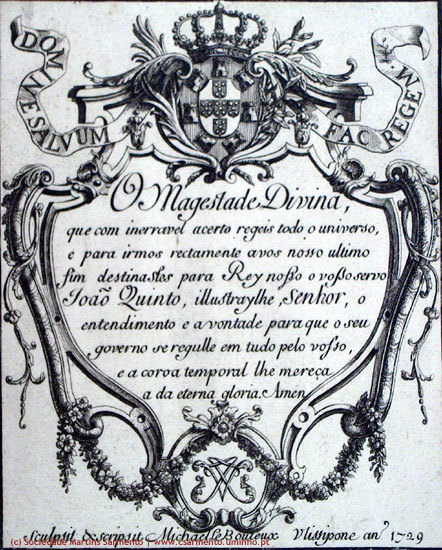 DOMINE SALVUM
FAC REGEM.
O Magestade Divina,
que com inerravel acerto regeis todo o universo,
e para irmos rectamente a vos nosso ultimo
fim destinastes para Rey nosso o vosso servo
Joaõ Quinto, illustraylhe, Senhor, o
entendimento e a vontade para que o seu
governo se regulle em tudo pelo vosso,
e a coroa temporal lhe mereça
a da eterna gloria. Amen
Sculpsit & scripsit Michael le Bouteux Vlissipone anº 1729
(c) Sociedade Martins Sarmento | www.csarmento.uminho.pt